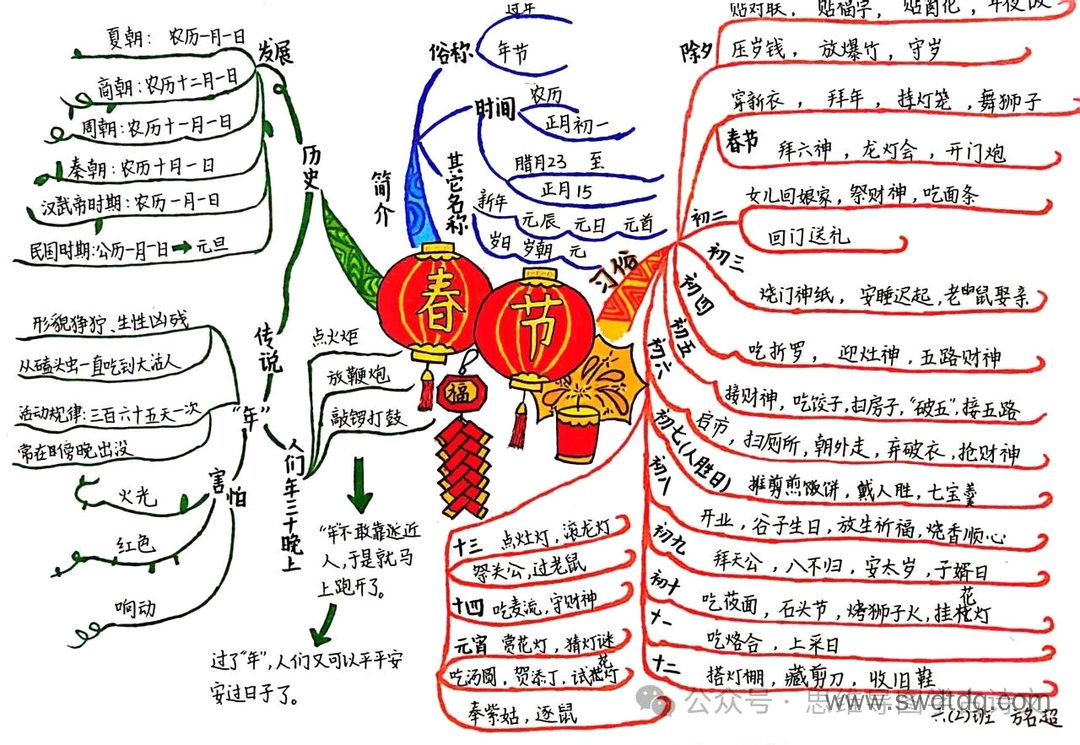 春
节
福
简介
俗称
过年
年节
时间
农历
正月初一
腊月23 至
正月15
其它名称
新年
元辰 元日 元首
岁日 岁朝 元
历史
发展
夏朝：农历一月一日
商朝：农历十二月一日
周朝：农历十一月一日
秦朝：农历十月一日
汉武帝时期：农历一月一日
民国时期：公历一月一日→元旦
传说
“年”
形貌狰狞、生性凶残
从磕头虫一直吃到大活人
活动规律：三百六十五天一次
常在傍晚出没
害怕
火光
红色
响动
人们年三十晚上
点火炬
放鞭炮
敲锣打鼓
“年不敢靠近
人，于是就马
上跑开了。
过了“年”，人们又可以平平安
安过日子了。
习俗
除夕
贴对联，贴福字，贴窗花，年夜饭
压岁钱，放爆竹，守岁
春节
穿新衣，拜年，挂灯笼，舞狮子
拜六神，龙灯会，开门炮
初二
女儿回娘家，祭财神，吃面条
回门送礼
初三
烧门神纸，安睡迟起，老鼠娶亲
初四
吃折罗，迎灶神，五路财神
初五
接财神，吃饺子，扫房子，“破五”接五路
初六
启市，扫厕所，朝外走，弃破衣，抢财神
初七（人胜日）
摊剪煎饼，戴人胜，七宝羹
初八
开业，谷子生日，放生祈福，烧香顺心
初九
拜天公，八不归，安太岁，子婿日
初十
吃莜面，石头节，烤狮子火，挂花灯
十一
吃烙合，上采日
十二
搭灯棚，藏剪刀，收旧鞋
十三
点灶灯，滚龙灯
祭关公，过老鼠
十四
吃麦流，守财神
元宵
赏花灯，猜灯谜
吃汤圆，贺添丁，试花灯
奉紫姑，逐鼠
公众号·思维导图
www.swdtdq.com
六(2)班